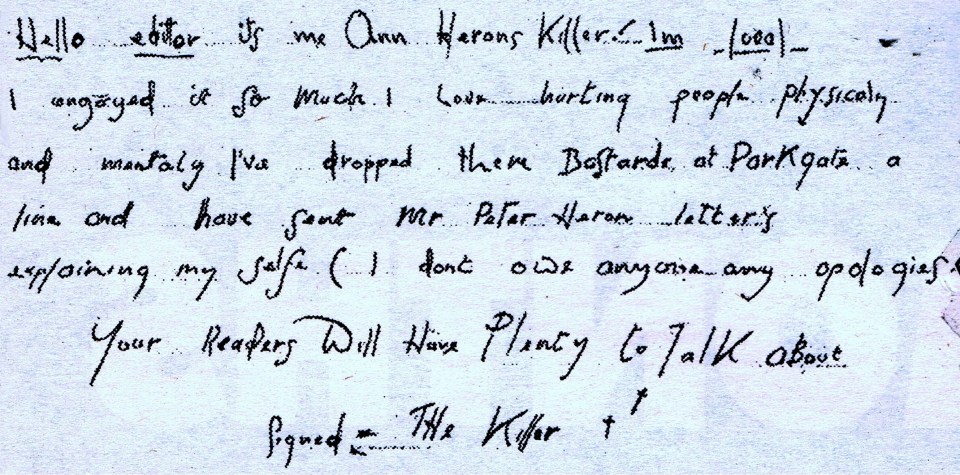 Hello editor its me Ann Herons Killer. Im local
I engoyed it so much I Love hurting people physicaly
and mentaly I've dropped there Bastards at ParKgate a
line and have sent Mr Peter Heron letter's
explaining my selfe ( I dont owe anyone any apologies
Your Readers Will Have Plenty to TalK about
Signed - THe Killer